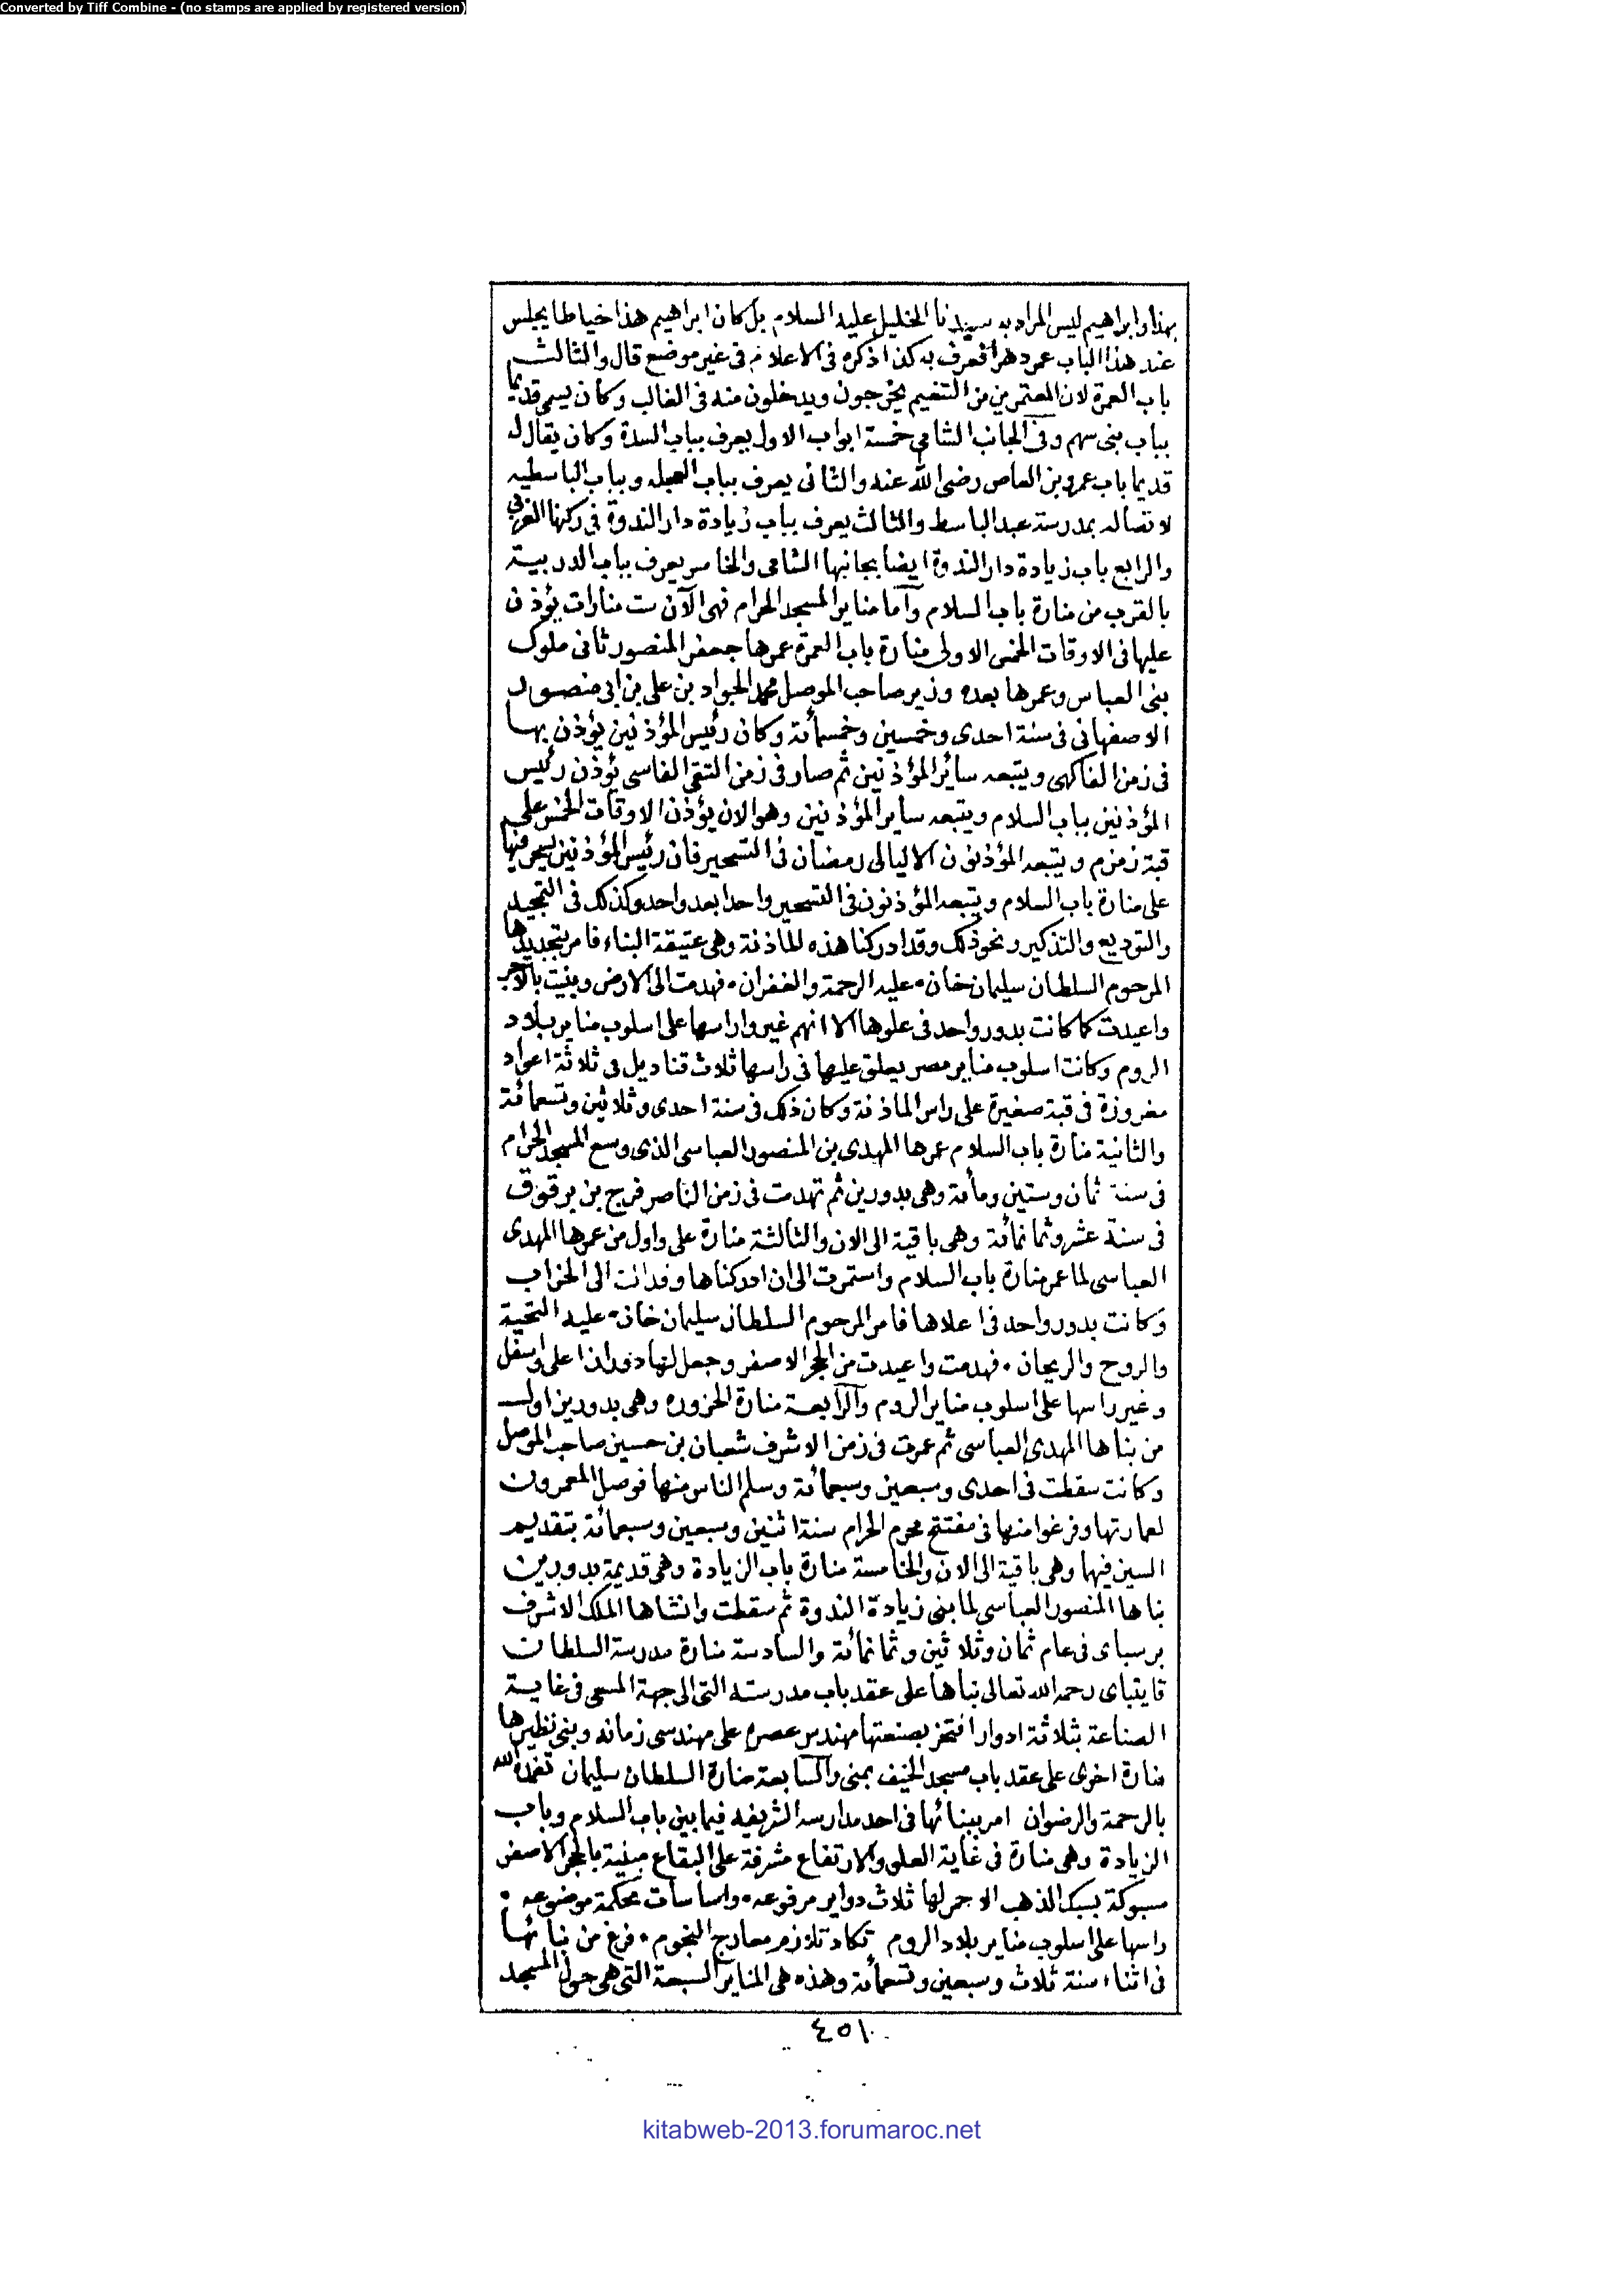 Converted by Tiff Combine - (no stamps are applied by registered version)
بهذا وابراهيم ليس المراد به سيدنا الخليل عليه السلام بل كان ابراهيم هذا خياطا يجلس
عند هذا الباب عمر دهرا فعرف به كذا ذكره فى الاعلام فى غير موضع قال والثالث
باب العمرة لان المعتمرين من التنعيم يخرجون ويدخلون منه فى الغالب وكان يسمى قديما
بباب بنى سهم وفى الجانب الشامى خمسة ابواب الاول يعرف بباب السدة وكان يقال له
قديما باب عمرو بن العاص رضى الله عنه والثانى يعرف بباب العجله وبباب الباسطيه
لاتصاله بمدرسة عبد الباسط والثالث يعرف بباب زيادة دار الندوة فى ركنها الغربى
والرابع باب زيادة دار الندوة ايضا بجانبها الشامى والخامس يعرف بباب الدريبة
بالقرب من منارة باب السلام وأما منابر المسجد الحرام فهى الآن ست منارات يؤذن
عليها فى الاوقات الخمس الاولى منارة باب العمرة عمرها جعفر المنصور ثانى ملوك
بنى العباس وعمرها بعده وزير صاحب الموصل محمد الجواد بن على بن ابى منصور
الاصفهانى فى سنة احدى وخمسين وخمسمائة وكان رئيس المؤذنين يؤذن بها
فى زمن الفاكهى ويتبعه سائر المؤذنين ثم صار فى زمن التقى الفاسى يؤذن رئيس
المؤذنين بباب السلام ويتبعه سائر المؤذنين وهو الان يؤذن الاوقات الخمس على
قبة زمزم ويتبعه المؤذنون الا ليالى رمضان فى التسحير فان رئيس المؤذنين يسحر فيها
على منارة باب السلام ويتبعه المؤذنون فى التسحير واحدا بعد واحد وكذلك فى التمجيد
والتوديع والتذكير ونحو ذلك وقد ادركنا هذه الماذنة وهى عتيقة البناء فامر بتجديدها
المرحوم السلطان سليمان خان • عليه الرحمة والغفران • فهدمت الى الارض وبنيت بالآجر
واعيدت كما كانت بدور واحد فى علوها الا انهم غيروا راسها على اسلوب مناير بلاد
الروم وكانت اسلوب مناير مصر يعلق عليها فى راسها ثلاث قناديل فى ثلاثة اعواد
مغروزة فى قبة صغيرة على راس الماذنة وكان ذلك فى سنة احدى وثلاثين وتسعمائة
والثانية منارة باب السلام عمرها المهدى بن المنصور العباسى الذى وسع المسجد الحرام
فى سنة ثمان وستين ومأئة وهى بدورين ثم تهدمت فى زمن الناصر فرج بن برقوق
فى سنة عشر وثمانمائة وهى باقية الى الان والثالثة منارة على واول من عمرها المهدى
العباسى لما عمر منارة باب السلام واستمرت الى ان ادركناها وقد الت الى الخراب
وكانت بدور واحد فى اعلاها فامر المرحوم السلطان سليمان خان • عليه التحية
والروح والريحان • فهدمت واعيدت من الحجر الاصفر وجعل لها دوران اعلى واسفل
وغير راسها على اسلوب مناير الروم والرابعة منارة الحزوره وهى بدورين اول
من بناها المهدى العباسى ثم عمرت فى زمن الاشرف شعبان بن حسين صاحب الموصل
وكانت سقطت فى احدى وسبعين وسبعمائة وسلم الناس منها فوصل المعمرون
لعمارتها وفرغوا منها فى مفتتح محرم الحرام سنة اثنين وسبعين وسبعمائة بتقديم
السين فيها وهى باقية الى الان والخامسة منارة باب الزيادة وهى قديمة بدورين
بناها المنصور العباسى لما بنى زيادة الندوة ثم سقطت وانشاها الملك الاشرف
برسباى فى عام ثمان وثلاثين وثمانمائة والسادسة منارة مدرسة السلطان
قايتباى رحمه الله تعالى بناها على عقد باب مدرسته التى الى جهة المسعى فى غاية
الصناعة بثلاثة ادوار افتخر بصنعتها مهندس عصره على مهندسى زمانه وبنى نظيرها
منارة اخرى على عقد باب مسجد الخيف بمنى والسابعة منارة السلطان سليمان تغمده الله
بالرحمة والرضوان امر ببنائها فى احد مدارسه الشريفه فيما بين باب السلام وباب
الزيادة وهى منارة فى غاية العلو والارتفاع مشرفة على البقاع مبنية بالحجر الاصفر
مسبوكة بسبك الذهب الاحمر لها ثلاث دواير مرفوعه • واساسات محكمة موضوعه •
راسها على اسلوب مناير بلاد الروم تكاد تلازم معارج النجوم • فرغ من بنائها
فى اثناء سنة ثلاث وسبعين وتسعمائة وهذه هى المناير السبعة التى هى حول المسجد
٤٥١
kitabweb-2013.forumaroc.net